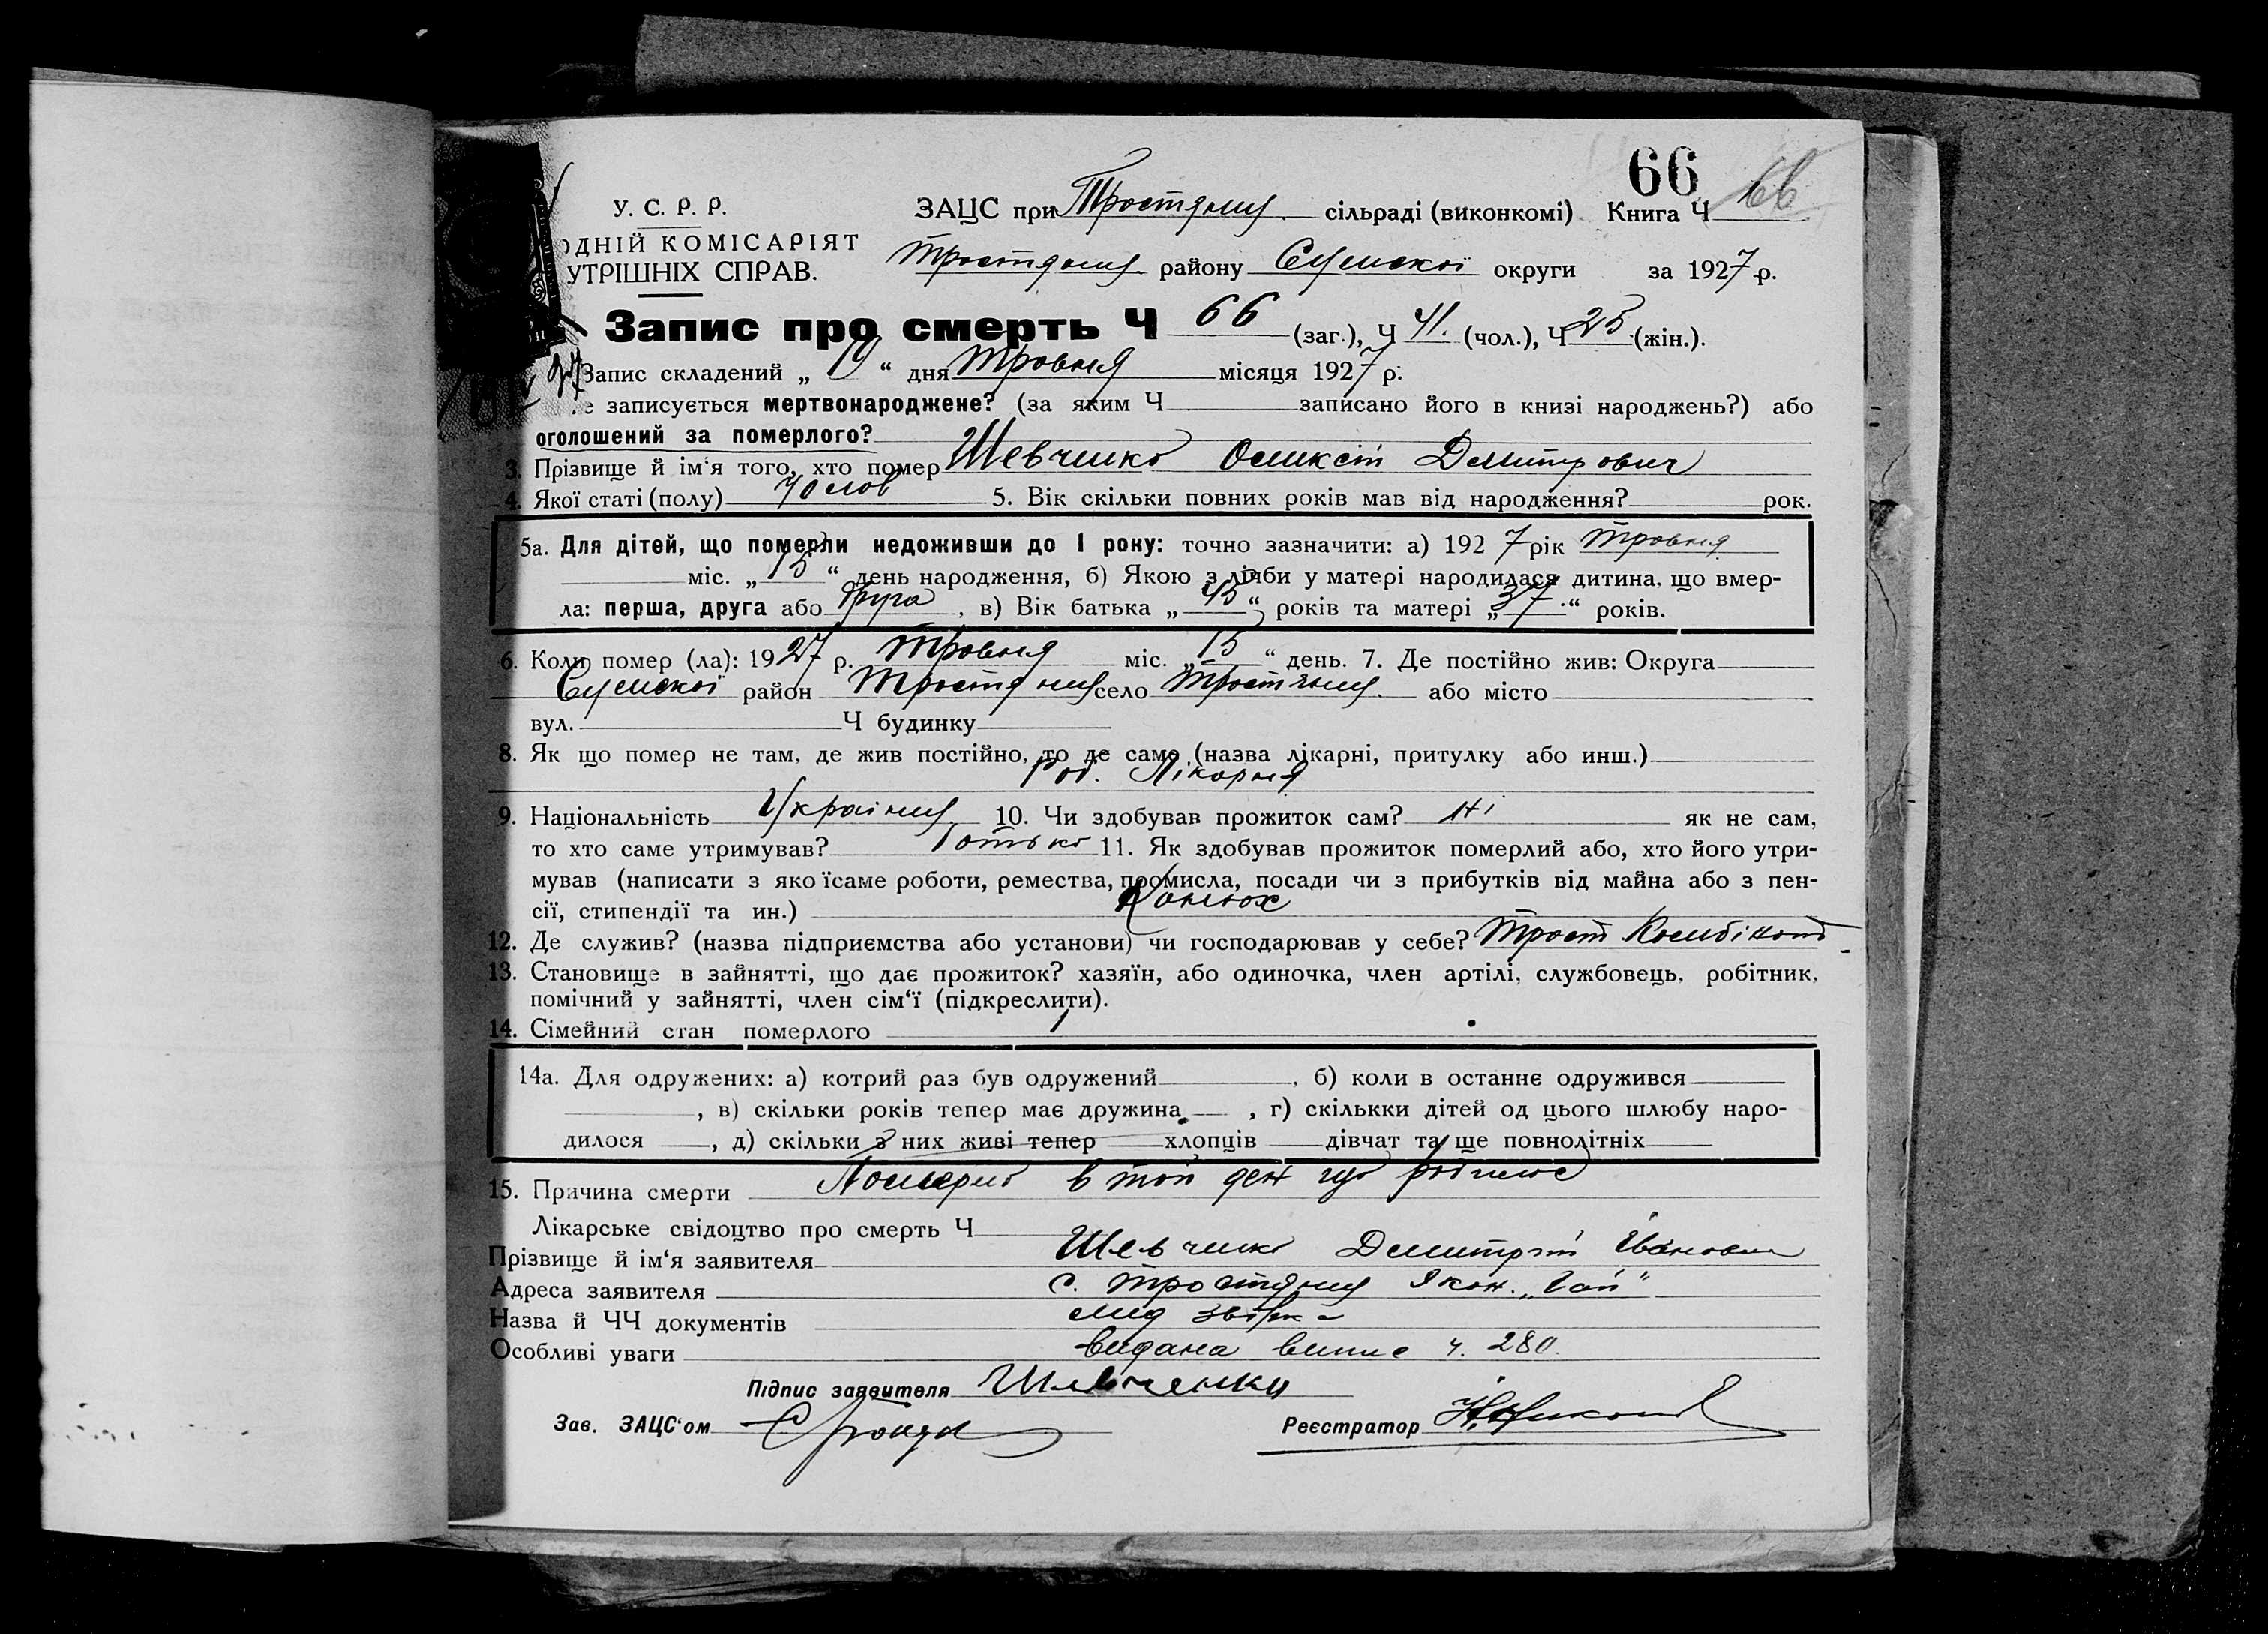 66
У. С. Р. Р. ЗАЦС при Тростянец сільраді (виконкомі) Книга Ч 66
ОДНІЙ КОМІСАРІЯТ
Тростянец району Сумскої округи за 1927 р.
УТРІШНІХ СПРАВ.
Запис про смерть Ч 66 (заг.), Ч 41. (чол.), Ч 25 (жін.).
Запис складений „ 19 “ дня Травня місяця 1927 р.
е записується мертвонароджене? (за яким Ч записано його в книзі народжень?) або
оголошений за померлого?
3. Прізвище й ім'я того, хто помер Шевченко Оликсій Дмитрович
4. Якої статі (полу) чолов 5. Вік скільки повних років мав від народження? рок.
5а. Для дітей, що померли недоживши до 1 року: точно зазначити: а) 1927 рік Травня
міс. „ 15 “ день народження, б) Якою з лічби у матері народилася дитина, що вмер-
ла: перша, друга або друга, в) Вік батька „ 45 “ років та матері „ 37 “ років.
6. Коли помер (ла): 1927 р. Травня міс. „ 15 “ день. 7. Де постійно жив: Округа
Сумскої район Тростянец село Тростянец або місто
вул. Ч будинку
8. Як що помер не там, де жив постійно, то де саме (назва лікарні, притулку або инш.)
Роб. Лікарня
9. Національність Українец 10. Чи здобував прожиток сам? ні як не сам,
то хто саме утримував? Батько 11. Як здобував прожиток померлий або, хто його утри-
мував (написати з якоїсаме роботи, ремества, промисла, посади чи з прибутків від майна або з пен-
сії, стипендії та ин.) Конюх
12. Де служив? (назва підприємства або установи) чи господарював у себе? Трост Комбінат
13. Становище в зайнятті, що дає прожиток? хазяїн, або одиночка, член артілі, службовець, робітник,
помічний у зайнятті, член сім‘ї (підкреслити).
14. Сімейний стан померлого
14а. Для одружених: а) котрий раз був одружений , б) коли в останнє одружився
, в) скільки років тепер має дружина , г) скількки дітей од цього шлюбу наро-
дилося , д) скільки з них живі тепер хлопців дівчат та ще повнолітніх
15. Причина смерти Померло в той ден що родилос
Лікарське свідоцтво про смерть Ч
Прізвище й ім'я заявителя Шевченко Дмитрій Іванович
Адреса заявителя с. Тростянец Екон. „Гай“
Назва й ЧЧ документів
Особливі уваги видана випис ч. 280.
Підпис заявителя Шевченки
Зав. ЗАЦС‘ом
Реєстратор